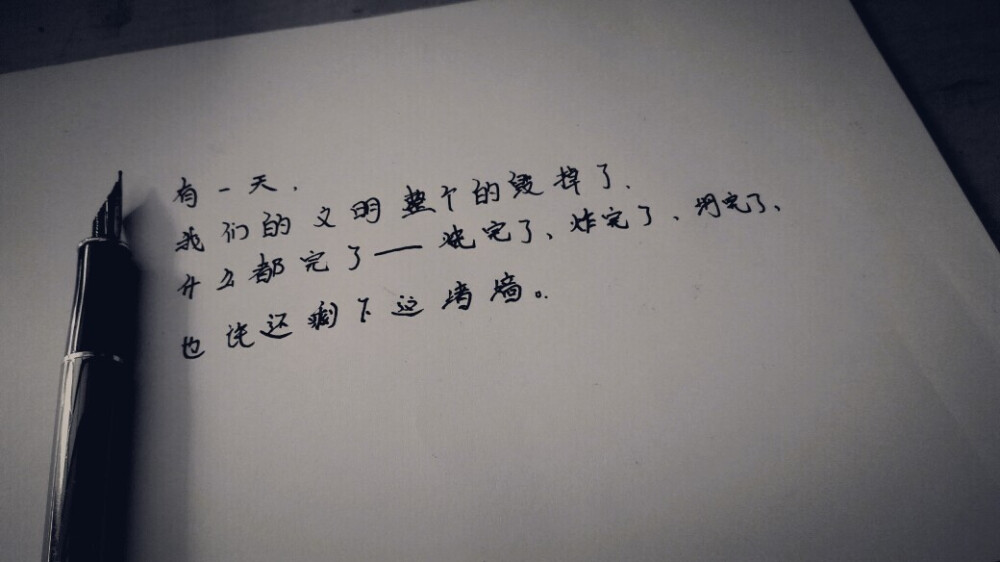 有一天,
我们的文明整个的毁掉了,
什么都完了——烧完了、炸完了、坍完了、
也许还剩下这堵墙。